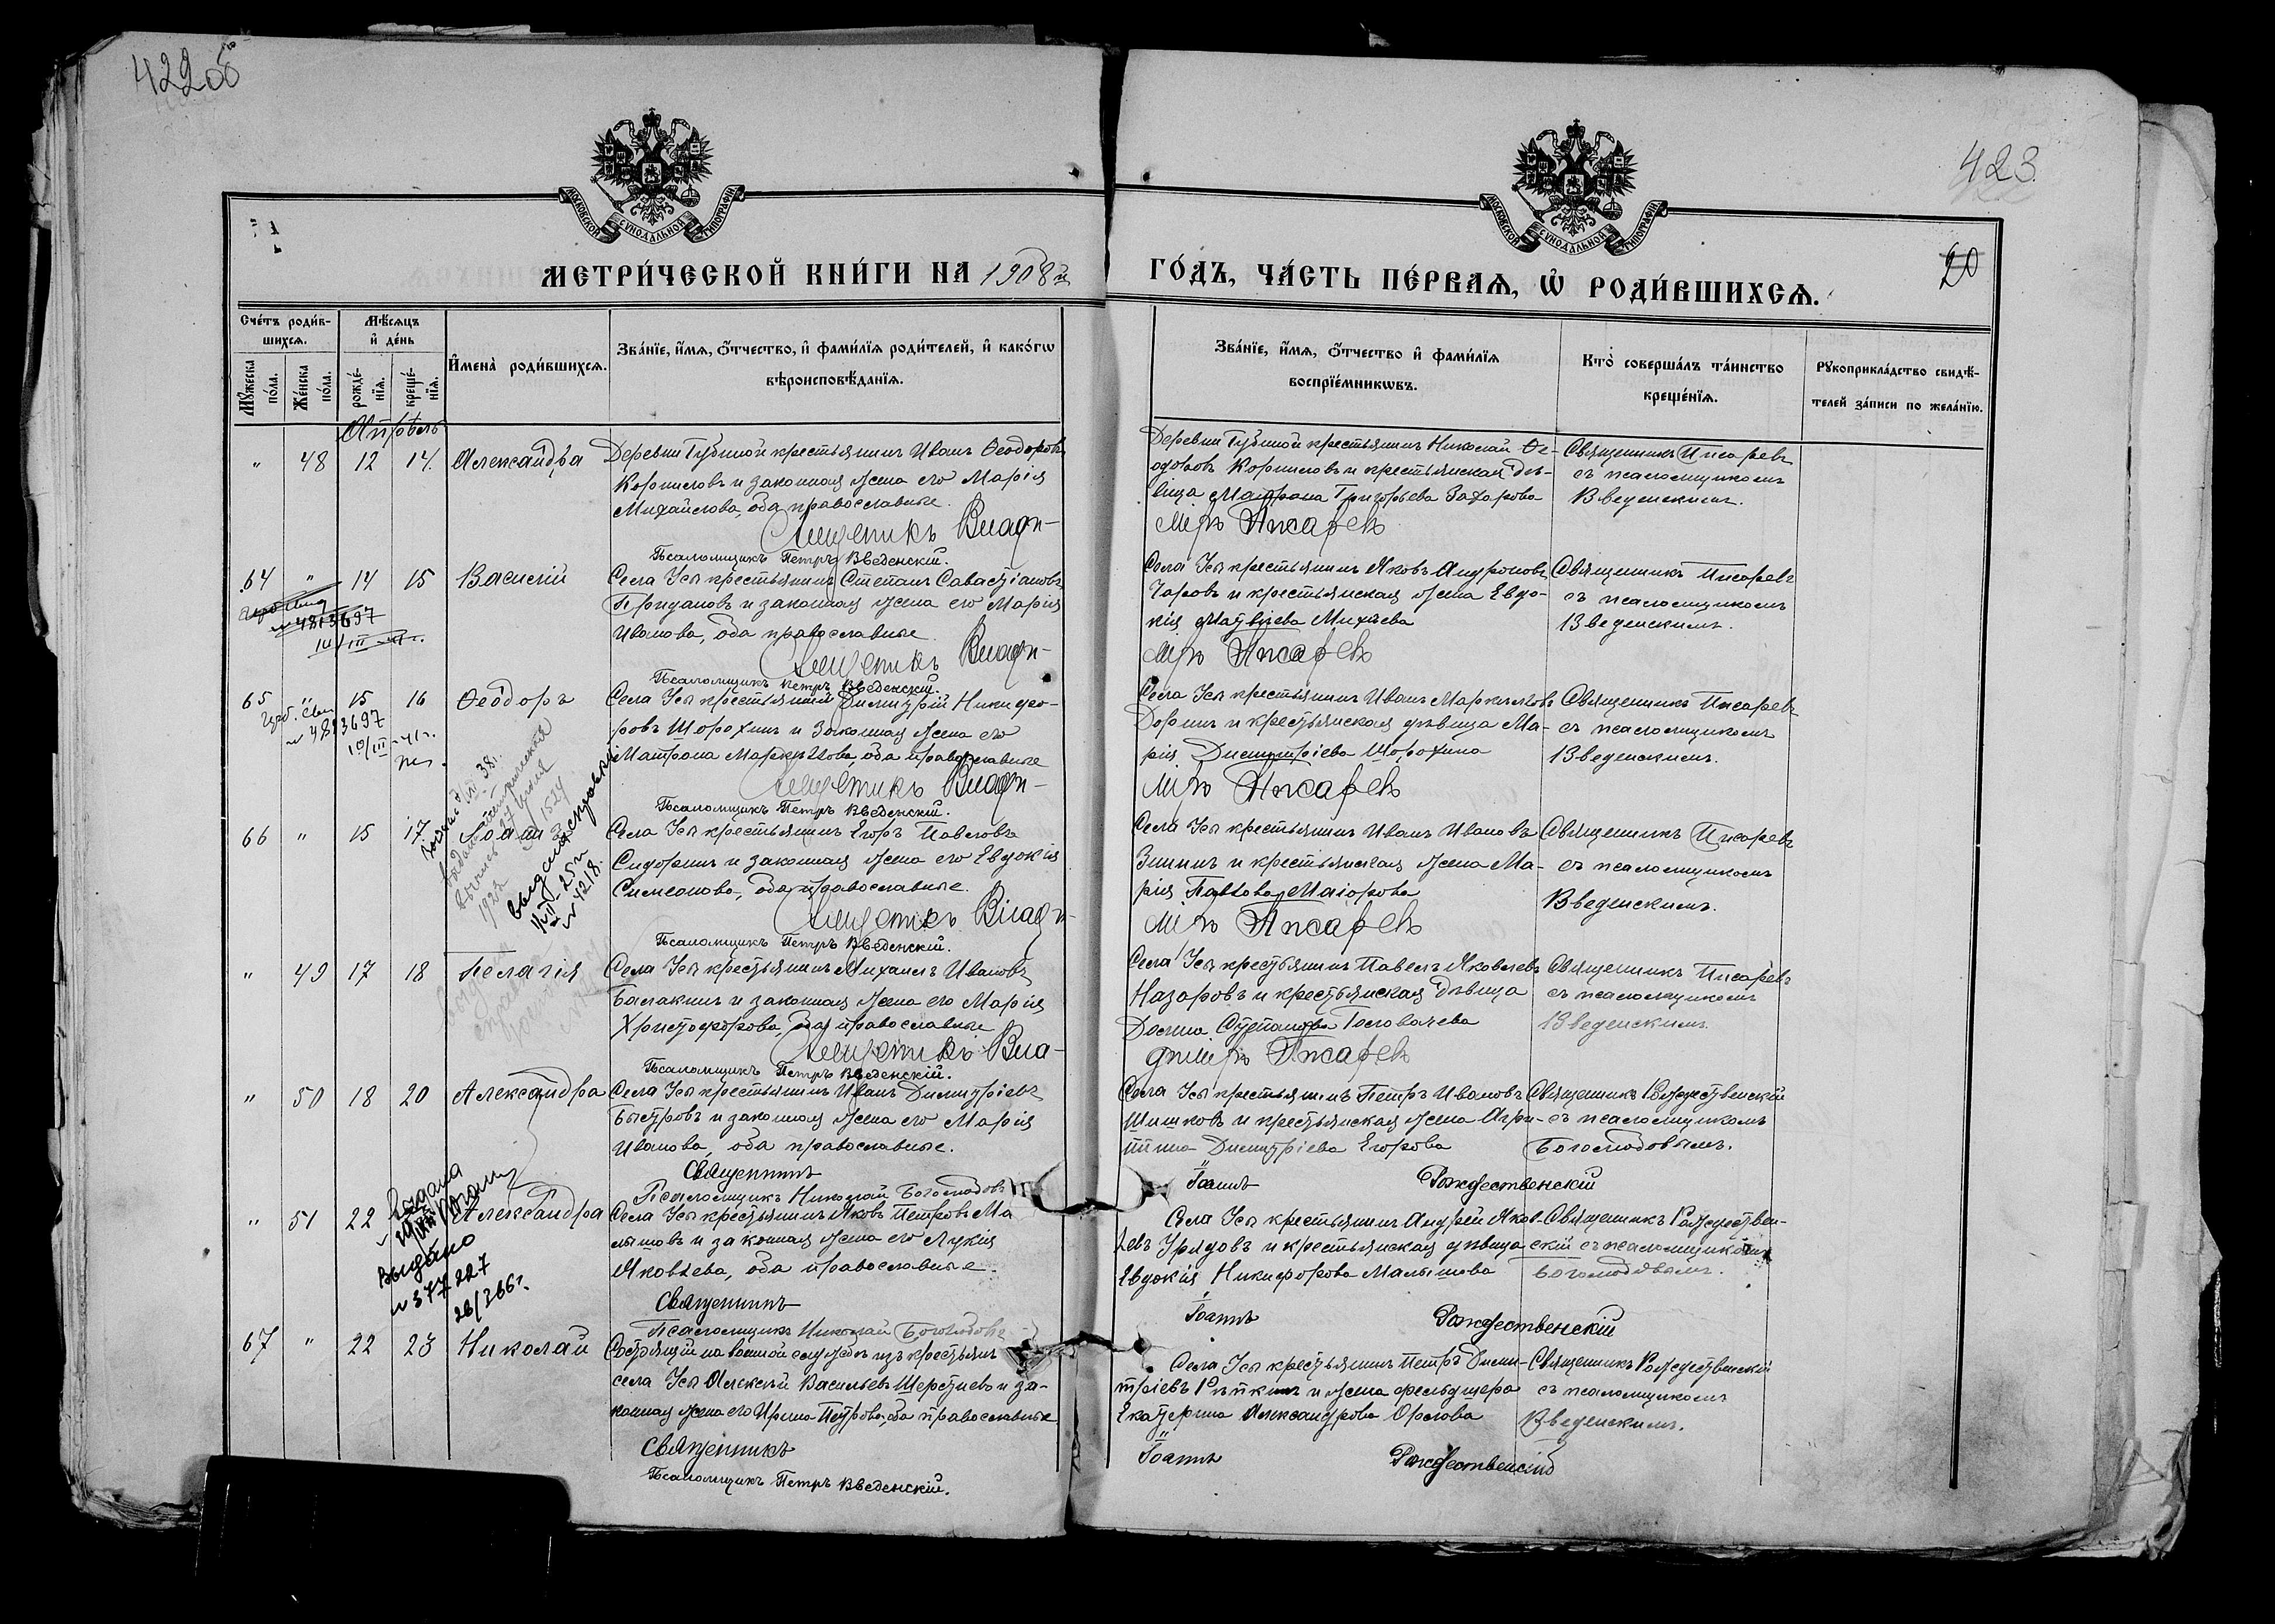 422 об
423.
20
МОСКОВСКОЙ СУНОДАЛЬНОЙ ТИПОГРАФІИ
МОСКОВСКОЙ СУНОДАЛЬНОЙ ТИПОГРАФІИ
МЕТРИ́ЧЕСКОЙ КНИ́ГИ НА 1908й
ГО́ДЪ, ЧА́СТЬ ПЕ́РВАѦ, Ѡ҆ РОДИ́ВШИХСѦ.
Сче́тъ роди́в-
шихсѧ.
Мꙋ́жеска по́ла.
Же́нска по́ла.
Мѣ́сѧцъ
и҆ де́нь
рожде́-
нїѧ.
креще́-
нїѧ.
И҆мена̀ роди́вшихсѧ.
Зва́нїе, и҆́мѧ, ѻ҆́тчество, и҆ фами́лїѧ роди́телей, и҆ како́гѡ
вѣроисповѣ́данїѧ.
Зва́нїе, и҆́мѧ, ѻ҆́тчество и҆ фами́лїѧ
воспрїе́мникѡвъ.
Кто̀ соверша́лъ та́инство
креще́нїѧ.
Рꙋкоприкла́дство свидѣ́-
телей за́писи по жела́нїю.
Апрѣль
" 48 12 14. Александра
Деревни Губиной крестьянинъ Иванъ Ѳеодоровъ
Корниловъ и законная жена его Марія
Михайлова, оба православные.
Священникъ Влади-
Псаломщикъ Петръ Введенскій.
Деревни Губиной крестьянинъ Николай Ѳе-
одоровъ Корниловъ и крестьянская дѣ-
вица Матрона Григорьева Захарова
міръ Писаревъ
Священникъ Писаревъ
съ псаломщикомъ
Введенскимъ.
64 " 14 15 Василій
№ 4813697
Села Усы крестьянинъ Степанъ Савастіановъ
Придановъ и законная жена его Марія
Иванова, оба православные.
Священникъ Влади-
Псаломщикъ Петръ Введенскій.
Села Усы крестьянинъ Яковъ Андроновъ
Чаровъ и крестьянская жена Евдо-
кія Матвѣева Михѣева
міръ Писаревъ
Священникъ Писаревъ
съ псаломщикомъ
Введенскимъ.
65 " 15 16 Ѳеодоръ
№ 4813697
10/III-41г.
Села Усы крестьянинъ Димитрій Никифо-
ровъ Шорохинъ и законная жена его
Матрона Маркеллова, оба православные
Священникъ Влади-
Псаломщикъ Петръ Введенскій.
Села Усы крестьянинъ Иванъ Маркелловъ
Доринъ и крестьянская дѣвица Ма-
рія Димитріева Шорохина
міръ Писаревъ
Священникъ Писаревъ
съ псаломщикомъ
Введенскимъ.
66 " 15 17 Іоаннъ
38г.
1922
25 г.
№ 4218
Села Усы крестьянинъ Егоръ Павловъ
Сидоринъ и законная жена его Евдокія
Симеонова, оба православные.
Священникъ Влади-
Псаломщикъ Петръ Введенскій.
Села Усы крестьянинъ Иванъ Ивановъ
Зининъ и крестьянская жена Ма-
рія Павлова Маіорова
міръ Писаревъ
Священникъ Писаревъ
съ псаломщикомъ
Введенскимъ.
" 49 17 18 Пелагія
Села Усы крестьянинъ Михаилъ Ивановъ
Балакинъ и законная жена его Марія
Христофорова, оба православные
Священникъ Вла-
Псаломщикъ Петръ Введенскій.
Села Усы крестьянинъ Павелъ Яковлевъ
Назаровъ и крестьянская дѣвица
Домна Степанова Головачева
диміръ Писаревъ
Священникъ Писаревъ
съ псаломщикомъ
Введенскимъ.
" 50 18 20 Александра
Села Усы крестьянинъ Иванъ Димитріевъ
Быстровъ и законная жена его Марія
Иванова, оба православные.
Священникъ
Псаломщикъ Николай Боголюбовъ
Села Усы крестьянинъ Петръ Ивановъ
Шишковъ и крестьянская жена Агри-
пина Димитріева Егорова
Іоаннъ Рождественскій
Священникъ Рождественскій
съ псаломщикомъ
Боголюбовымъ.
" 51 22 Александра
Выдано
№ 377227
26/366г.
Села Усы крестьянинъ Яковъ Петровъ Ма
лышовъ и законная жена его Лукія
Яковлева, оба православные.
Священникъ
Псаломщикъ Николай Боголюбовъ
Села Усы крестьянинъ Андрей Яков-
левъ Урядовъ и крестьянская дѣвица
Евдокія Никифорова Малышова
Іоаннъ Рождественскій
Священникъ Рождествен-
скій съ псаломщикомъ
Боголюбовымъ.
67 " 22 23 Николай
Состоящій на военной службѣ изъ крестьянъ
села Усы Алексѣй Васильевъ Шерстневъ и за-
конная жена его Ирина Петрова, оба православные
Священникъ
Псаломщикъ Петръ Введенскій.
Села Усы крестьянинъ Петръ Дими-
тріевъ Рѣпкинъ и жена фельдшера
Екатерина Александрова Орлова
Іоаннъ Рождественскій
Священникъ Рождественскій
съ псаломщикомъ
Введенскимъ.